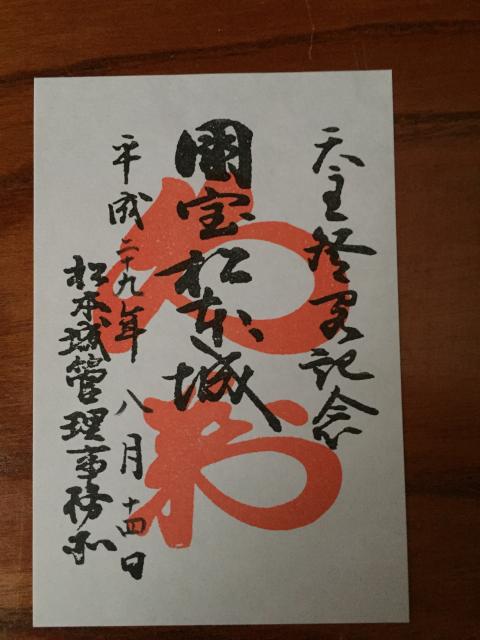 天主登閣記念
國宝松本城
平成二十九年八月十四日
松本城管理事務所